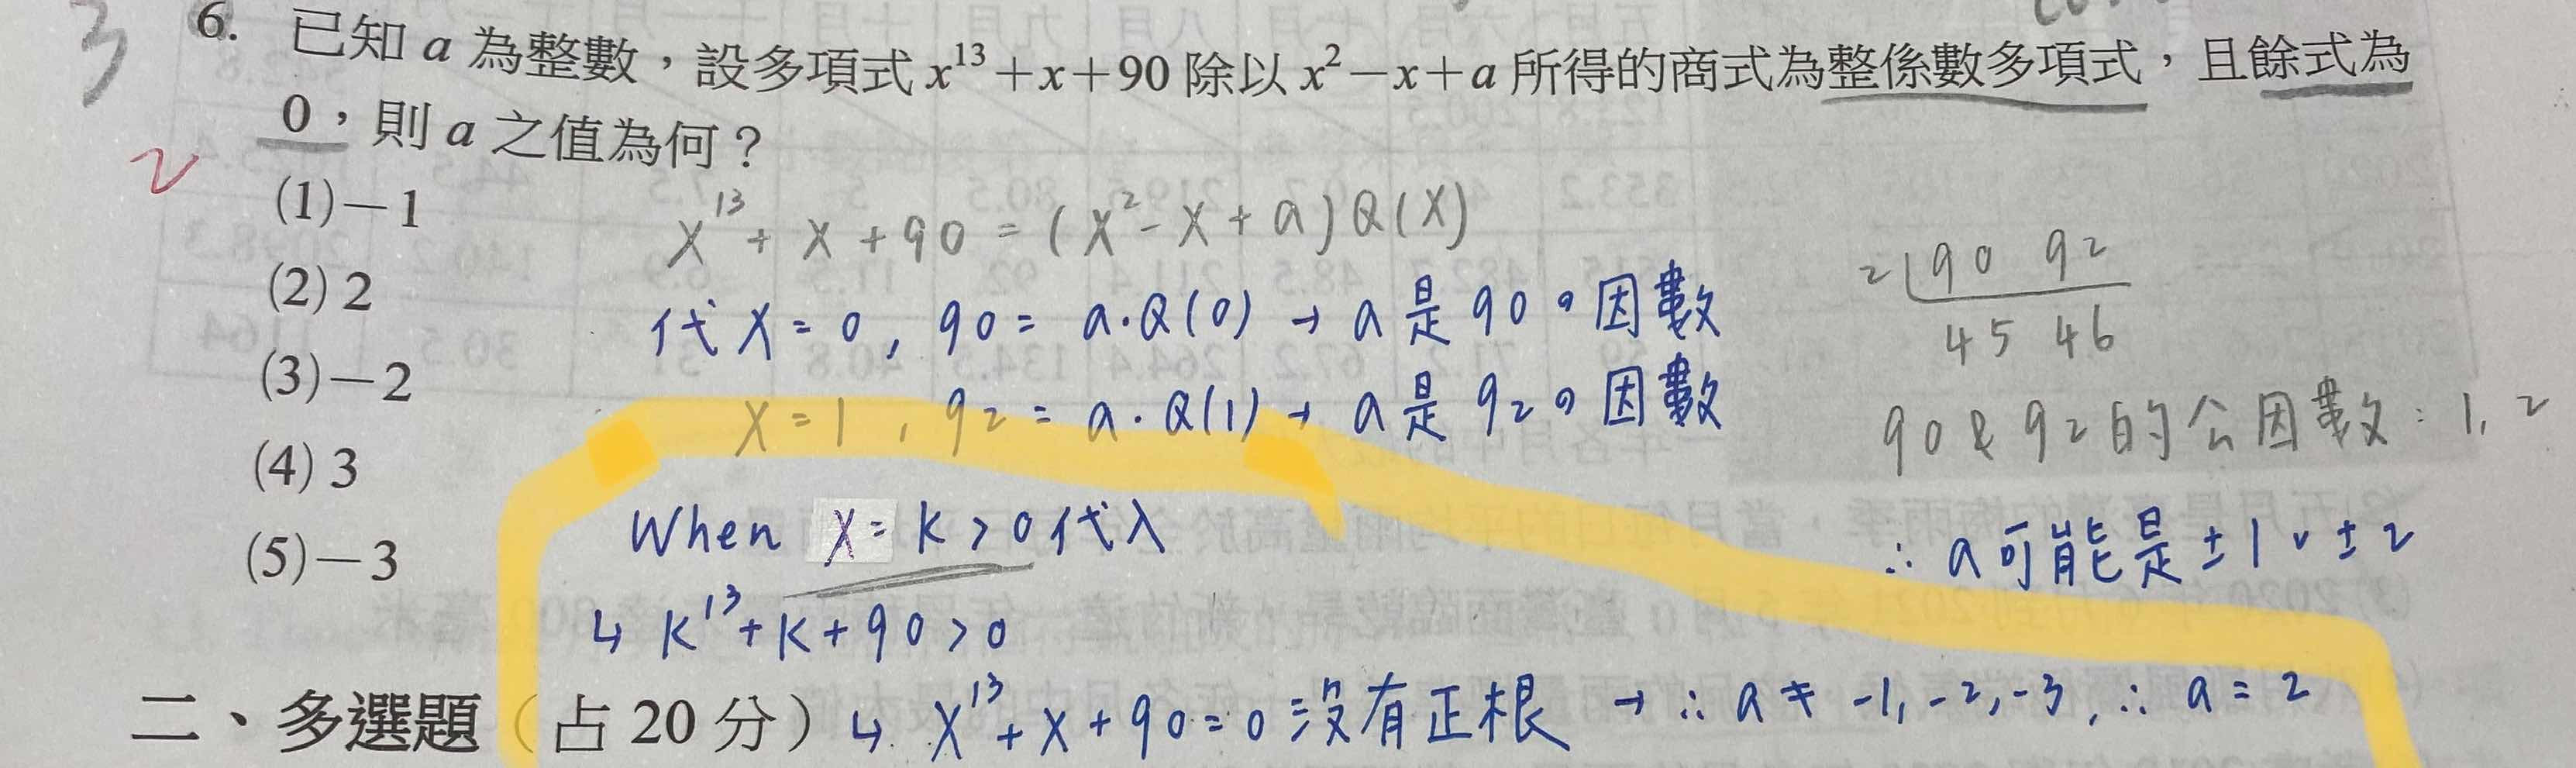 3
6. 已知 a 為整數，設多項式 x¹³+x+90 除以 x²−x+a 所得的商式為整係數多項式，且餘式為
0，則 a 之值為何？
2
(1)−1
(2) 2
(3)−2
(4) 3
(5)−3
X¹³ + X + 90 = (X² - X + a) Q(X)
代 X = 0, 90 = a·Q(0) → a 是 90 の因數
X = 1, 92 = a·Q(1) → a 是 92 の因數
2 90 92
45 46
90 & 92 的公因數：1, 2
∴ a 可能是 ±1 v ±2
When X = K > 0 代入
↳ K¹³ + K + 90 > 0
↳ X¹³ + X + 90 = 0 沒有正根 → ∴ a ≠ -1, -2, -3, ∴ a = 2
二、多選題（占 20 分）